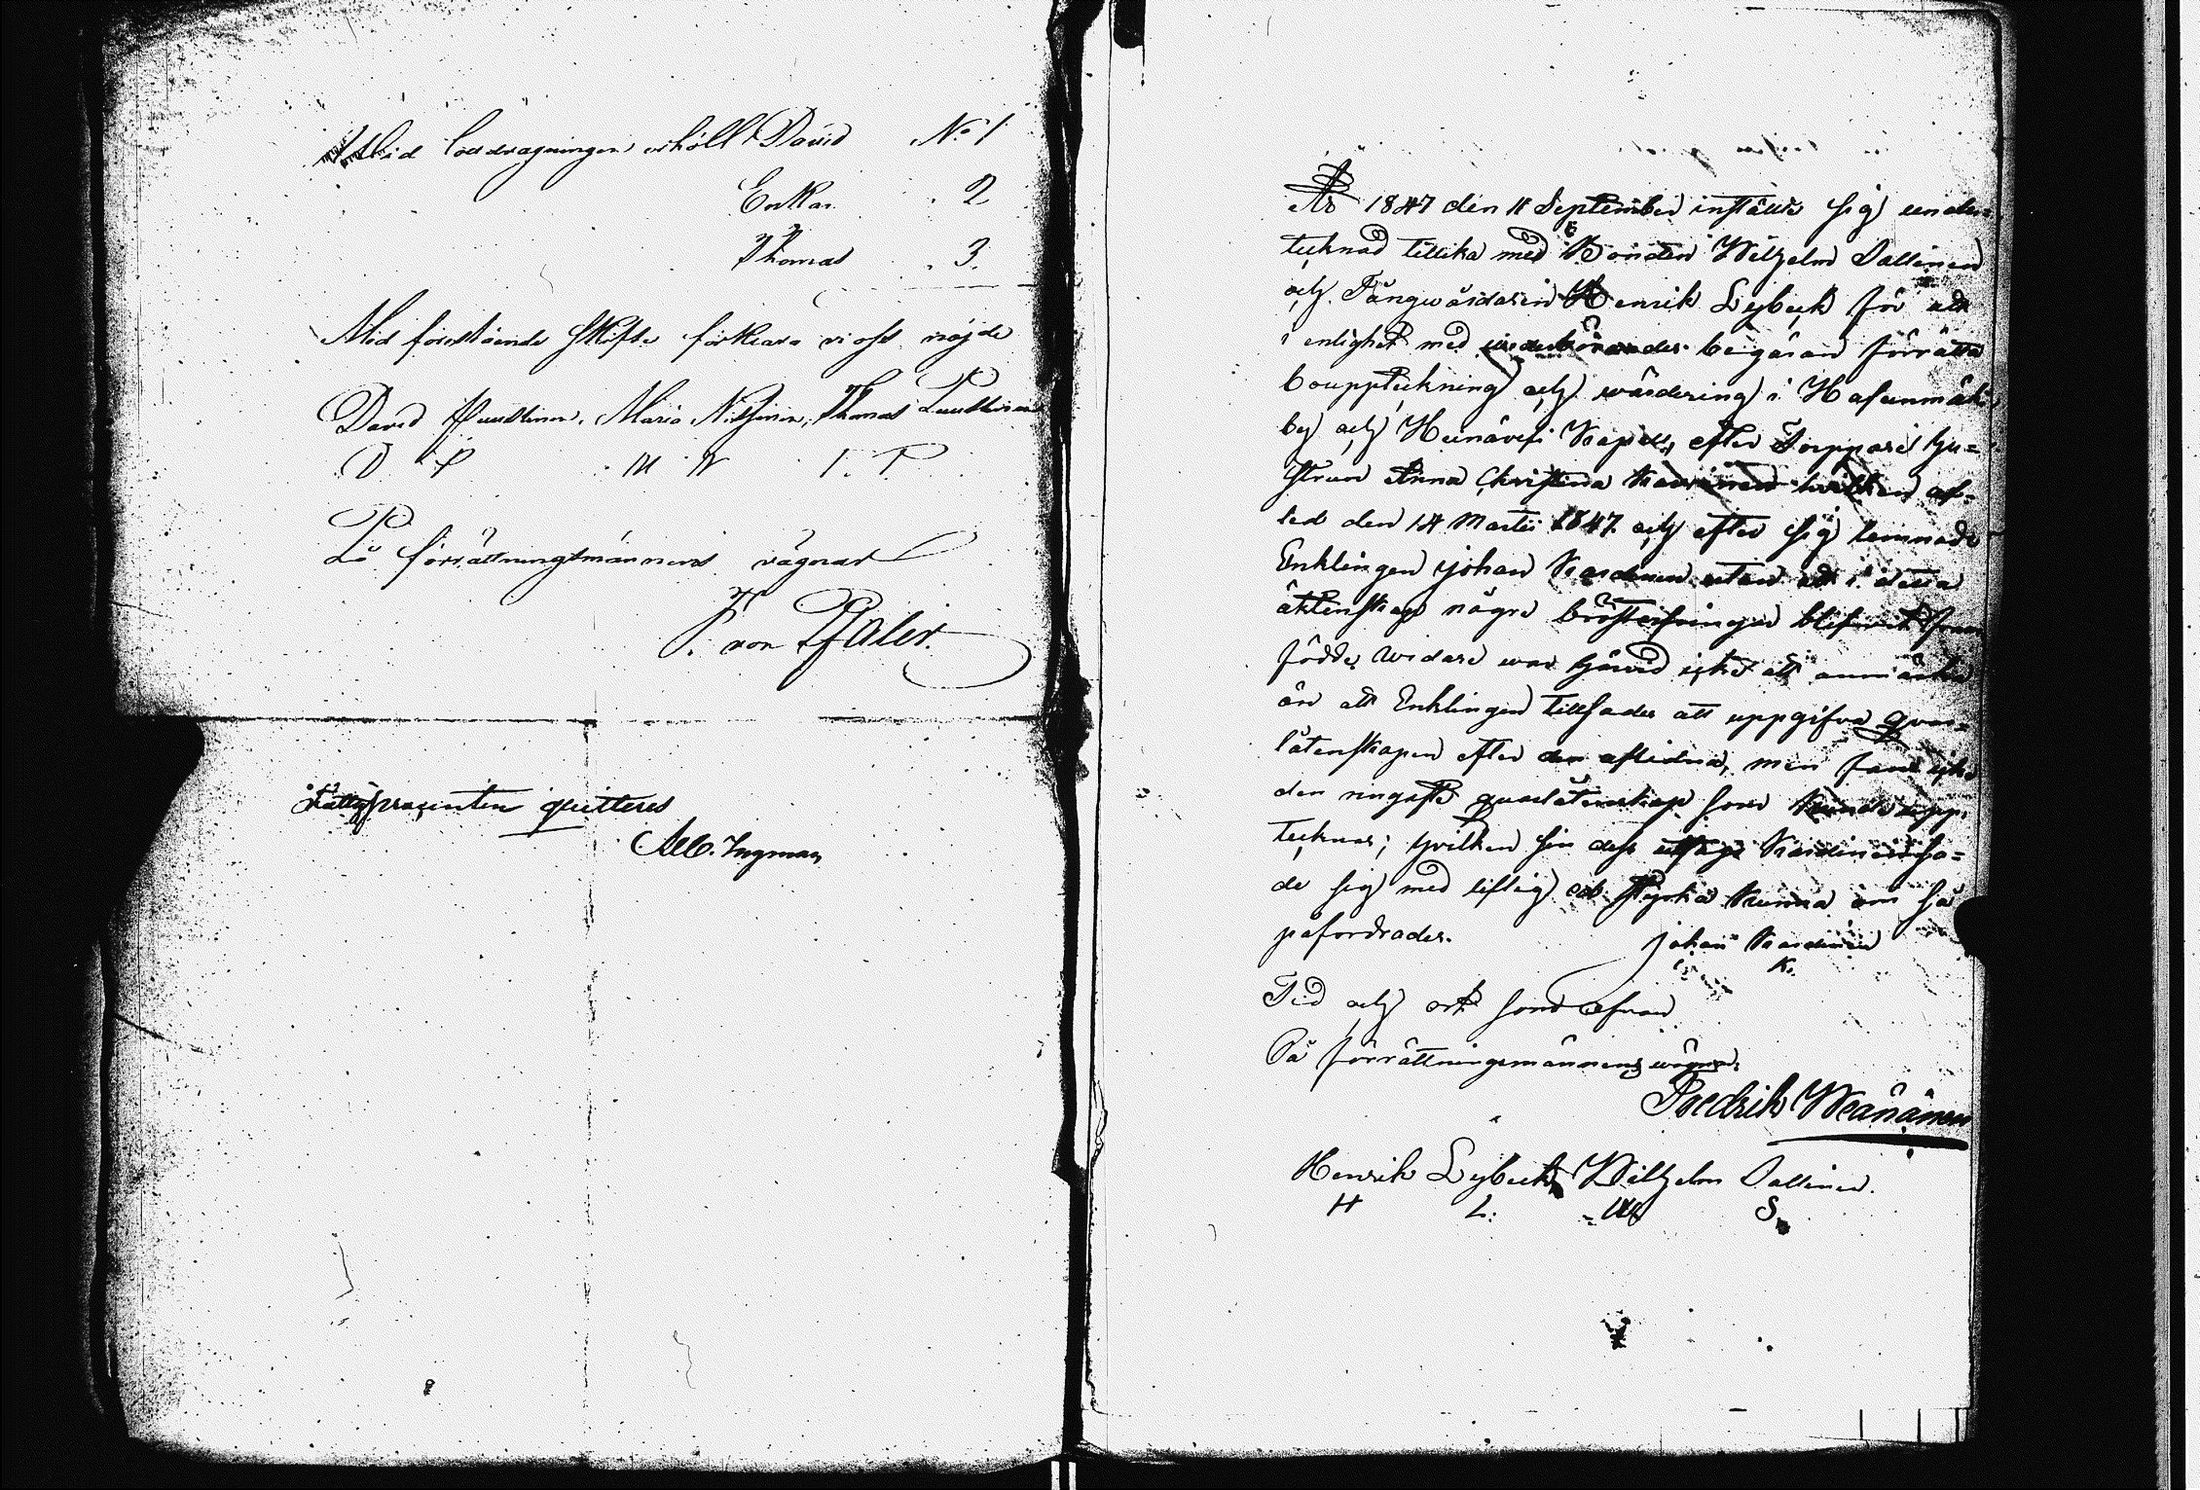 Vid lottdragningen erhöll David N:o 1
Enkan 2
Thomas 3.
Med förestående skifte förklara vi oss nöjde
David Puustinen, Maria Thomas Puustinen
D P M N T. P
På förrättningsmännens vägnar
von
Fattigprocenten quitteras
Ingman
År 1847 den September instälte sig under=
tecknad tillika med Bonden Wilhelm Sallinen
och Fångwårdaren Henrik Lybeck för att
i enlighet med wederbörandes begäran förrätta
bouppteckning och wärdering i
by och Heinävesi Kapell, efter Torppare Hu=
strun Anna Christina hvilken af=
led den 14 Martii 1847 och efter sig lemnade
Enklingen Johan utan att i detta
äktenskap någre bröstarfvingar blifvit fram
födde, widare war härvid icke att anmärka
än att Enklingen tillsades att uppgifva qvar=
låtenskapen efter den aflidna, men fans icke
den ringaste qvarlåtenskap som kunde upp=
tecknas; hvilken sin dess utsago
de sig med liflig ed styrka kunna om så
påfordrades.
Johan
K.
Tid och ort som ofvan
På förrättningsmännens wägnar
Fredrik Wäänänen
Henrik Lybeck, Wilhelm Sallinen.
H L: W S